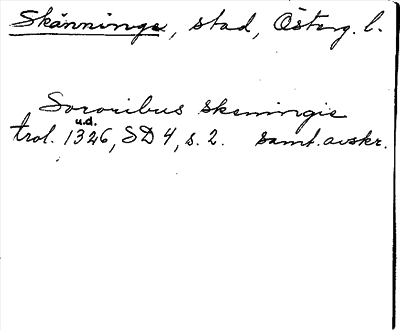 Skänninge, stad, Österg. l.
Sororibus skeningie
u.d.
trol. 1326, SD 4, s. 2. samt. avskr.